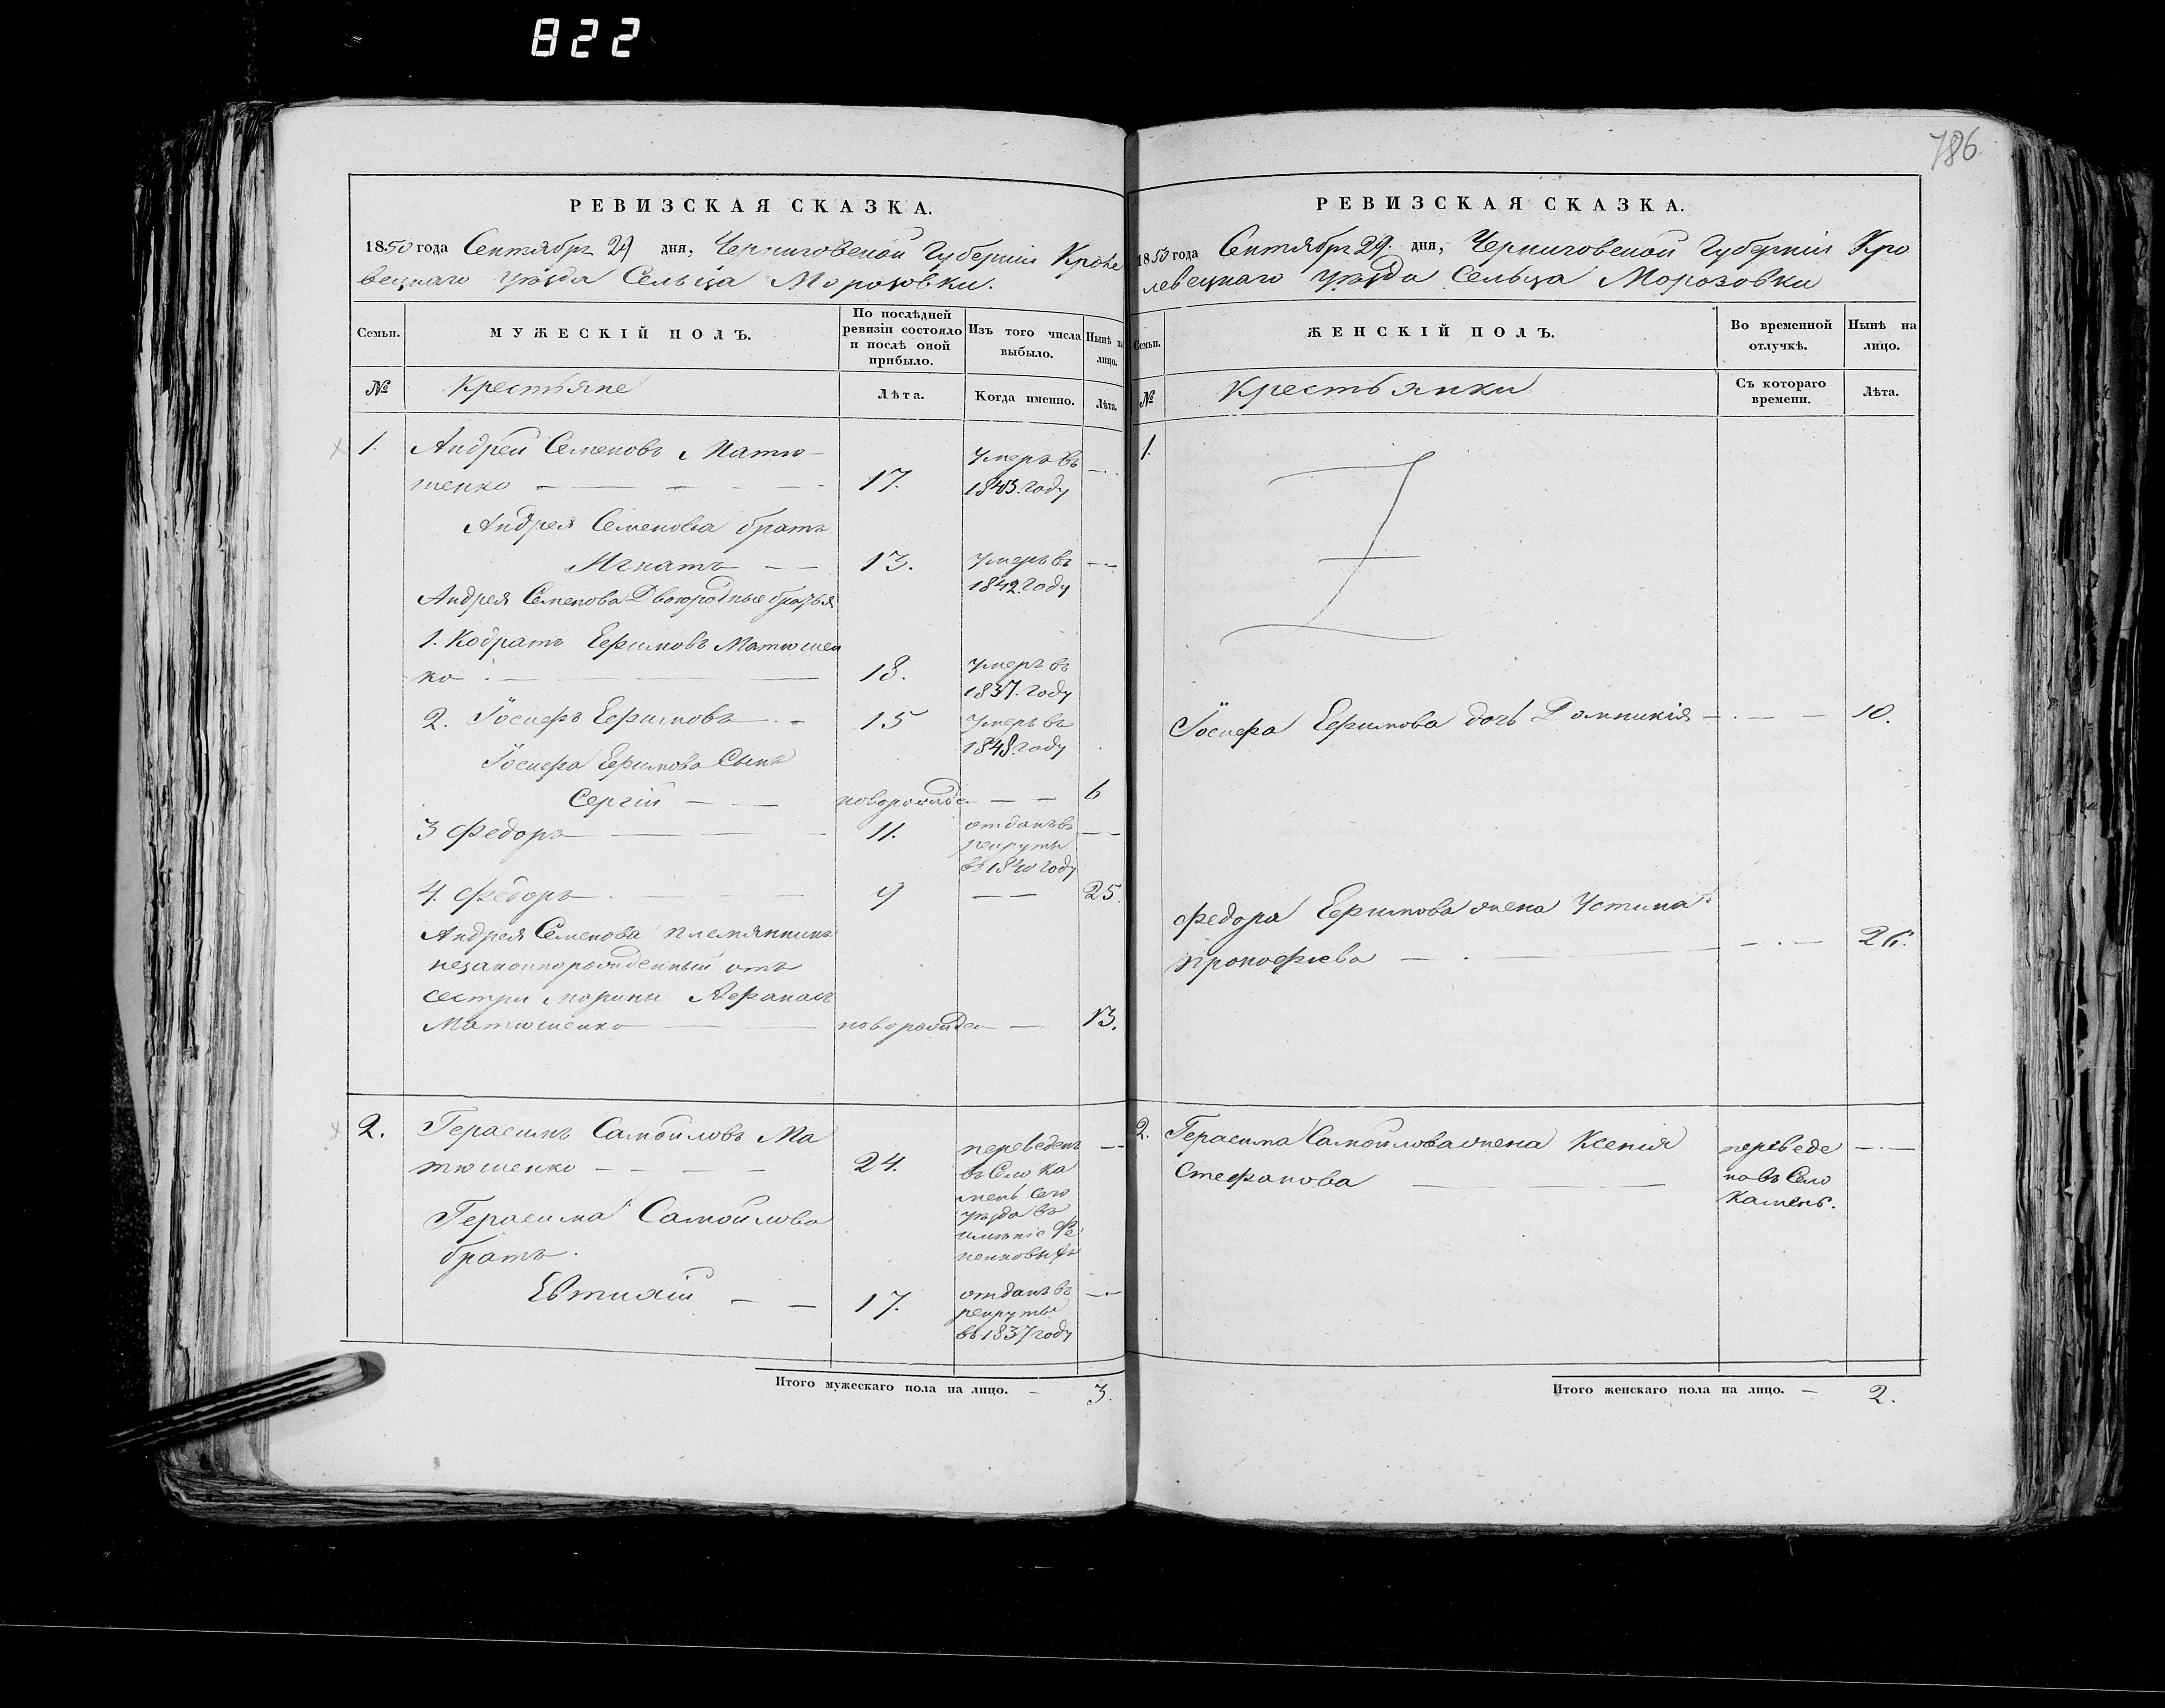 822
786.
РЕВИЗСКАЯ СКАЗКА.
1850 года Сентября 29 дня, Черниговской Губерніи Кроле
вецкаго уѣзда Сельца Морозовки.
Семьи.
МУЖЕСКІЙ ПОЛЪ.
По послѣдней
ревизіи состояло
и послѣ оной
прибыло.
Изъ того числа
выбыло.
Нынѣ на
лицо.
№
Крестьяне
Лѣта.
Когда именно.
Лѣта.
1. Андрей Семеновъ Матю-
шенко — 17. умеръ въ
1843. году
Андрея Семенова братъ
Игнатъ — 13. умеръ въ
1842. году
Андрея Семенова Двоюродные братья
1. Кодратъ Ефимовъ Матюшен
ко — 18. умеръ въ
1837. году
2. Іосифъ Ефимовъ — 15 умеръ въ
1848. году
Іосифа Ефимова Сынъ
Сергій — новорожде — 6
3 Федоръ — 11. отданъ въ
рекруты
въ 1840 году
4. Федоръ — 9 — 25.
Андрея Семенова племянникъ
незаконнорожденный отъ
сестри Морины Афанасъ
Матюшенко — новорожден — 13.
2. Герасимъ Самойловъ Ма
тюшенко — 24. переведенъ
въ Село Ка
мень сего
уѣзда въ
имѣніе
Герасима Самойлова
братъ.
Евтихій — 17. отданъ въ
рекруты
въ 1837 году
Итого мужескаго пола на лицо. — 3.
РЕВИЗСКАЯ СКАЗКА.
1850 года Сентября 29. дня, Черниговской Губерніи Кро
левецкаго уѣзда Сельца Морозовки
Семьи.
ЖЕНСКІЙ ПОЛЪ.
Во временной
отлучкѣ.
Нынѣ на
лицо.
№
Крестьянки
Съ котораго
времени.
Лѣта.
1.
Іосифа Ефимова дочь Домникія — 10.
Федора Ефимова жена Устина
Прокофіева — 26.
2. Герасима Самойлова жена Ксенія переведе
Стефанова — на въ Село
Камень.
Итого женскаго пола на лицо. — 2.